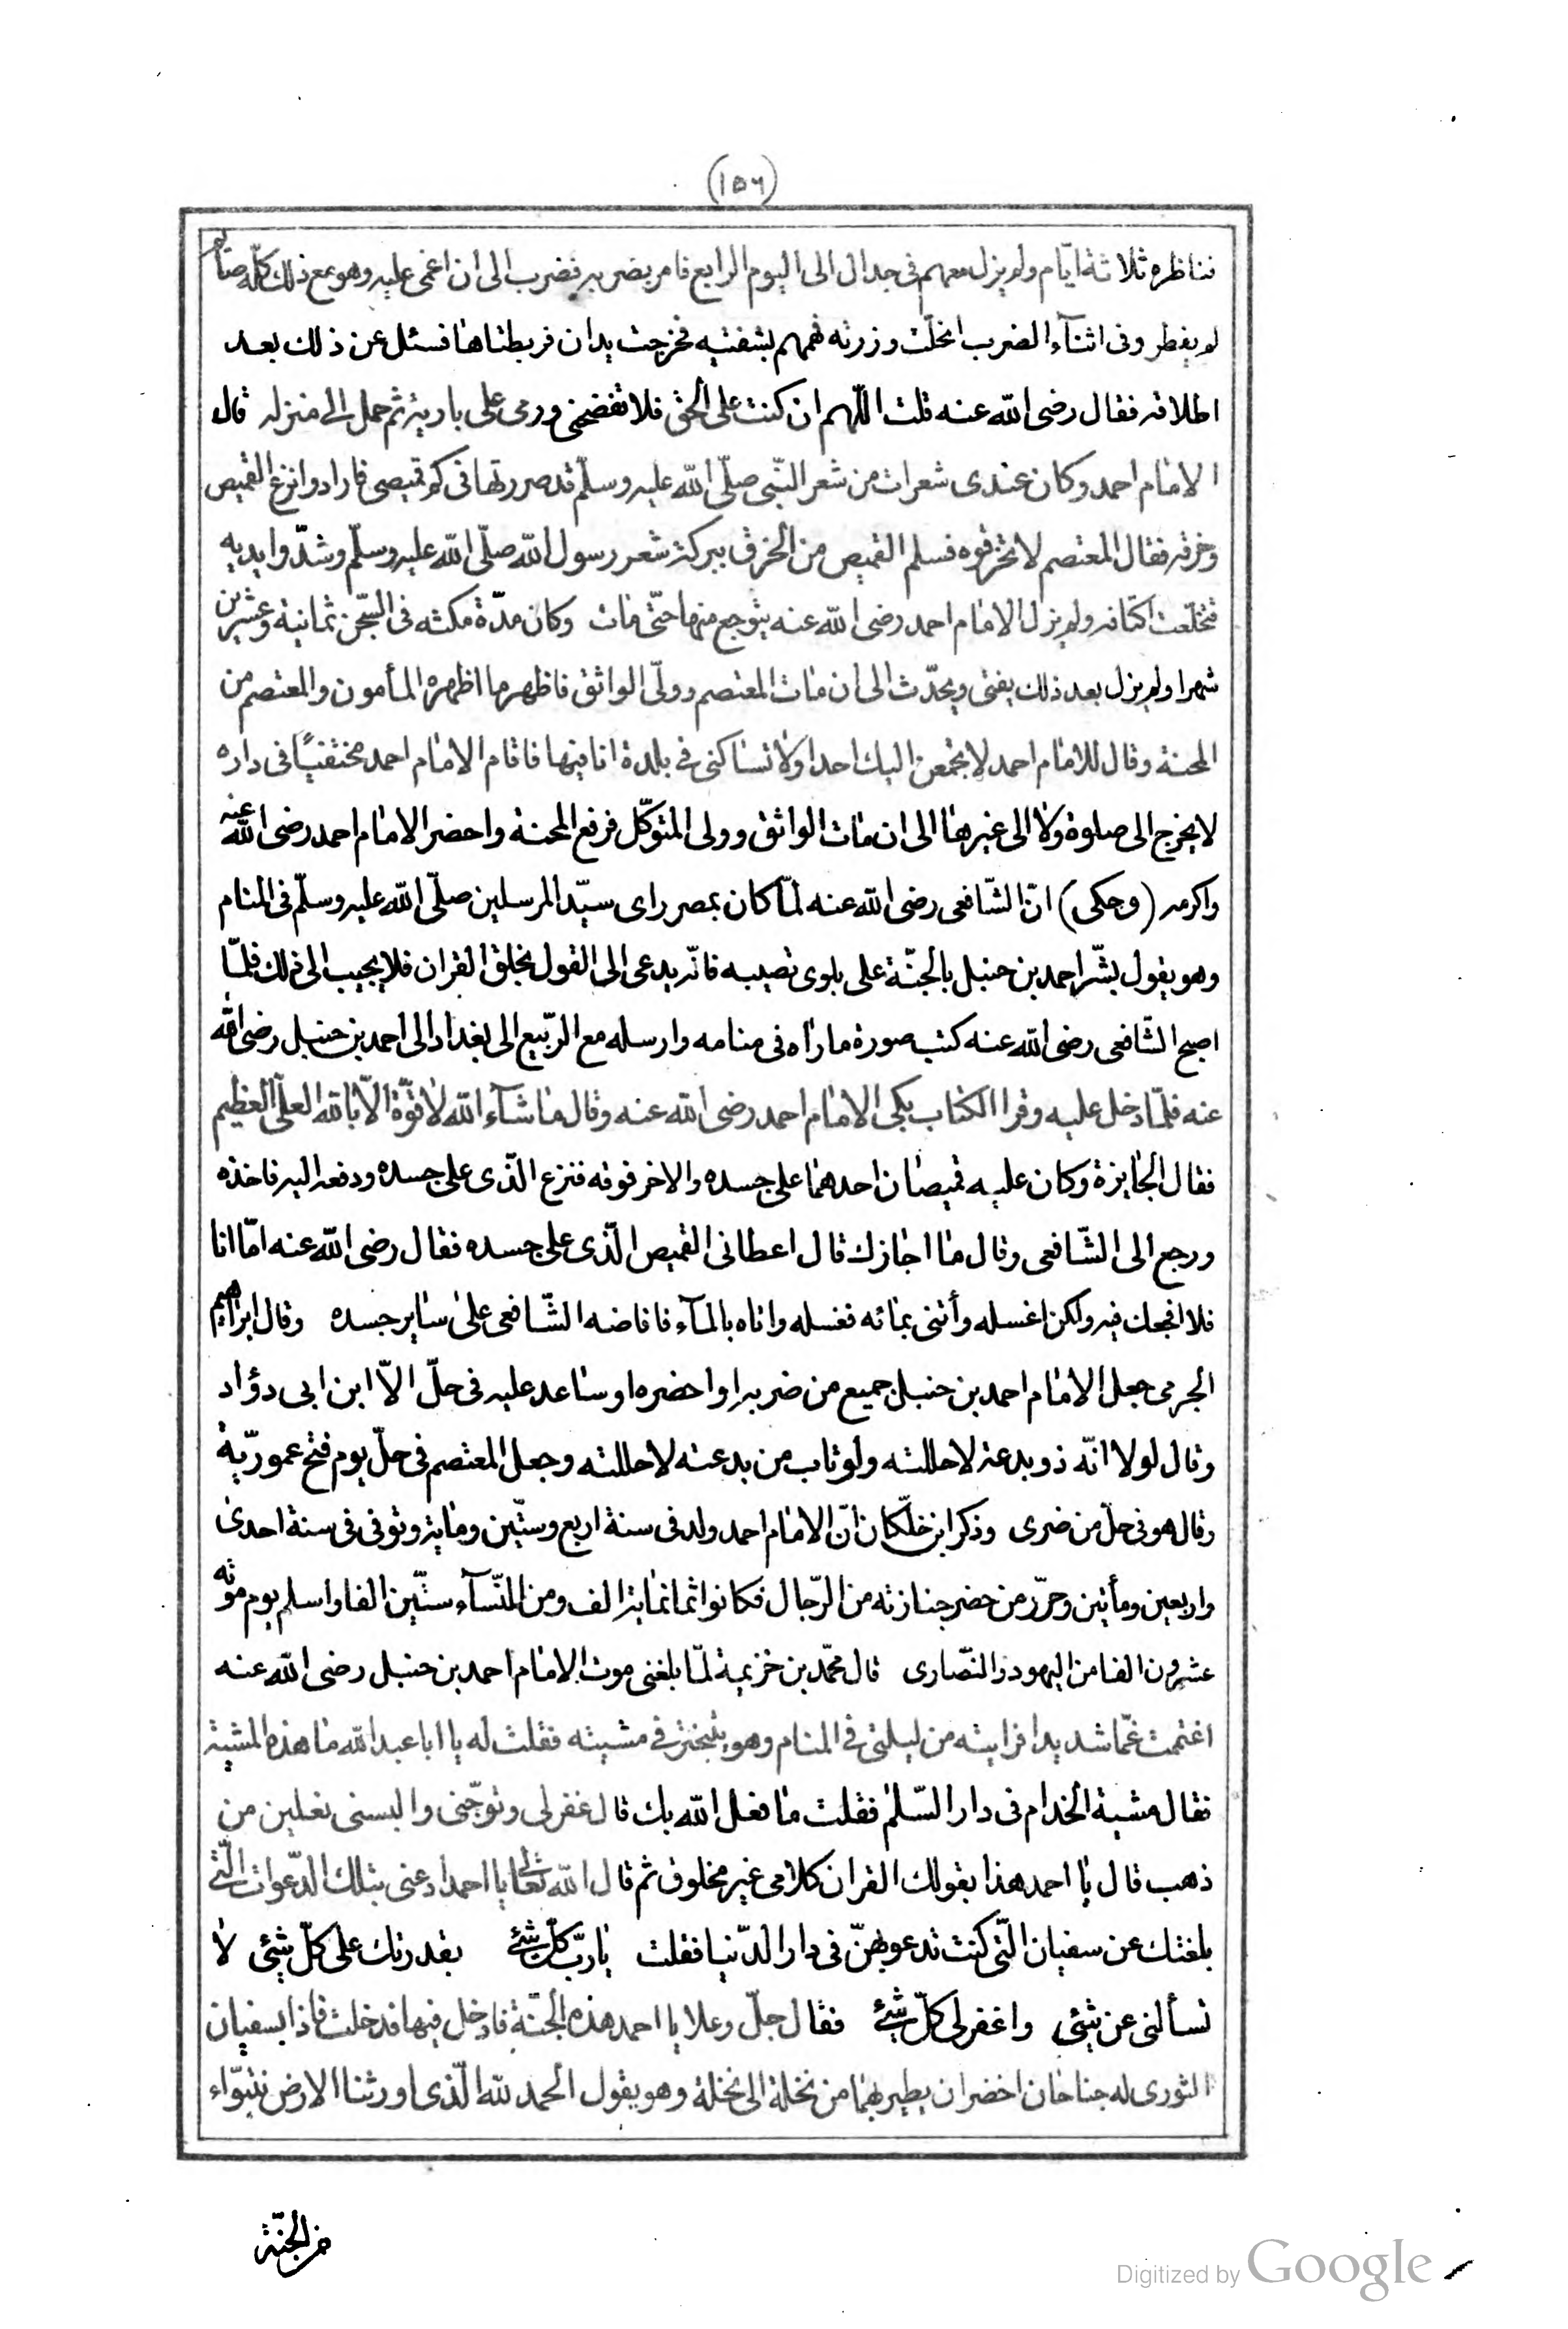 (١٥٦)
فناظره ثلاثة ايّام ولم يزل معهم فى جدال الى اليوم الرابع فامر بضربه فضرب الى ان اغمى عليه وهو مع ذلك كلّه صائم
لم يفطر وفى اثنآء الضرب انحلّت وزرته فهمهم بشفتيه فخرجت يدان فربطتاها فسئل عن ذلك بعد
اطلاقه فقال رضى الله عنه قلت اللّهم ان كنت على الحق فلا تفضحنى ورمى على بارية ثم حمل الى منزله قال
الامام احمد وكان عندى شعرات من شعر النّبى صلّى الله عليه وسلّم قد صررتها فى كم قميصى فارادوا نزع القميص
وخرقه فقال المعتصم لا تخرقوه فسلم القميص من الخرق ببركة شعر رسول الله صلّى الله عليه وسلّم وشدّوا يديه
فتخلّعت اكتافه ولم يزل الامام احمد رضى الله عنه يتوجع منها حتّى مات وكان مدّة مكثه فى السّجن ثمانية وعشرين
شهرا ولم يزل بعد ذلك يفتى ويحدّث الى ان مات المعتصم وولّى الواثق فاظهر ما اظهره المأمون والمعتصم من
المحنة وقال للامام احمد لا تجمعن اليك احدا ولا تساكنى فى بلدة انا فيها فاقام الامام احمد مختفيًا فى داره
لا يخرج الى صلوة ولا الى غيرها الى ان مات الواثق وولى المتوكّل فرفع المحنة واحضر الامام احمد رضى الله عنه
واكرمه (وحكى) انّ الشّافعى رضى الله عنه لمّا كان بمصر راى سيّد المرسلين صلّى الله عليه وسلّم فى المنام
وهو يقول بشّر احمد بن حنبل بالجنّة على بلوى تصيبه فانّه يدعى الى القول بخلق القران فلا يجيب الى ذلك فلمّا
اصبح الشّافعى رضى الله عنه كتب صورة ما رآه فى منامه وارسله مع الرّبيع الى بغداد الى احمد بن حنبل رضى الله
عنه فلمّا دخل عليه وقرا الكتاب بكى الامام احمد رضى الله عنه وقال ما شآء الله لا قوّة الّا بالله العلّى العظيم
فقال الجايزة وكان عليه قميصان احدهما على جسده والاخر فوقه فنزع الّذى على جسده ودفعه اليه فاخذه
ورجع الى الشّافعى وقال ما اجازك قال اعطانى القميص الّذى على جسده فقال رضى الله عنه امّا انا
فلا افجعك فيه ولكن اغسله وأتنى بمائه فغسله واتاه بالمآء فافاضه الشّافعى على ساير جسده وقال ابراهيم
الجرمى جعل الامام احمد بن حنبل جميع من ضربه او احضره او ساعد عليه فى حلّ الّا ابن ابى دؤاد
وقال لولا انّه ذو بدعة لاحللته ولو تاب من بدعته لاحللته وجعل المعتصم فى حلّ يوم فتح عموريّة
وقال هو فى حلّ من ضربى وذكر ابن خلّكان انّ الامام احمد ولد فى سنة اربع وستّين وماية وتوفى فى سنة احدى
واربعين ومأتين وحرّز من حضر جنازته من الرّجال فكانوا ثمانماية الف ومن النّسآء ستّين الفا واسلم يوم موته
عشرون الفا من اليهود والنّصارى قال محمّد بن خزيمة لمّا بلغنى موت الامام احمد بن حنبل رضى الله عنه
اغتممت غمّا شديدا فرايته من ليلتى فى المنام وهو يتبختر فى مشيته فقلت له يا ابا عبد الله ما هذه المشية
فقال مشية الخدام فى دار السّلم فقلت ما فعل الله بك قال غفر لى وتوّجنى والبسنى نعلين من
ذهب قال يا احمد هذا بقولك القران كلامى غير مخلوق ثم قال الله تعالى يا احمد ادعنى بتلك الدّعوات الّتى
بلغتك عن سفيان الّتى كنت تدعو بهنّ فى دار الدّنيا فقلت يا ربّ كلّ شئ بقدرتك على كلّ شئ لا
تسألنى عن شئ واغفر لى كلّ شئ فقال جلّ وعلا يا احمد هذه الجنّة فادخل فيها فدخلت فاذا بسفيان
الثورى له جناحان اخضران يطير بهما من نخلة الى نخلة وهو يقول الحمد لله الّذى اورثنا الارض نتبوّاء
من الجنّة
Digitized by Google